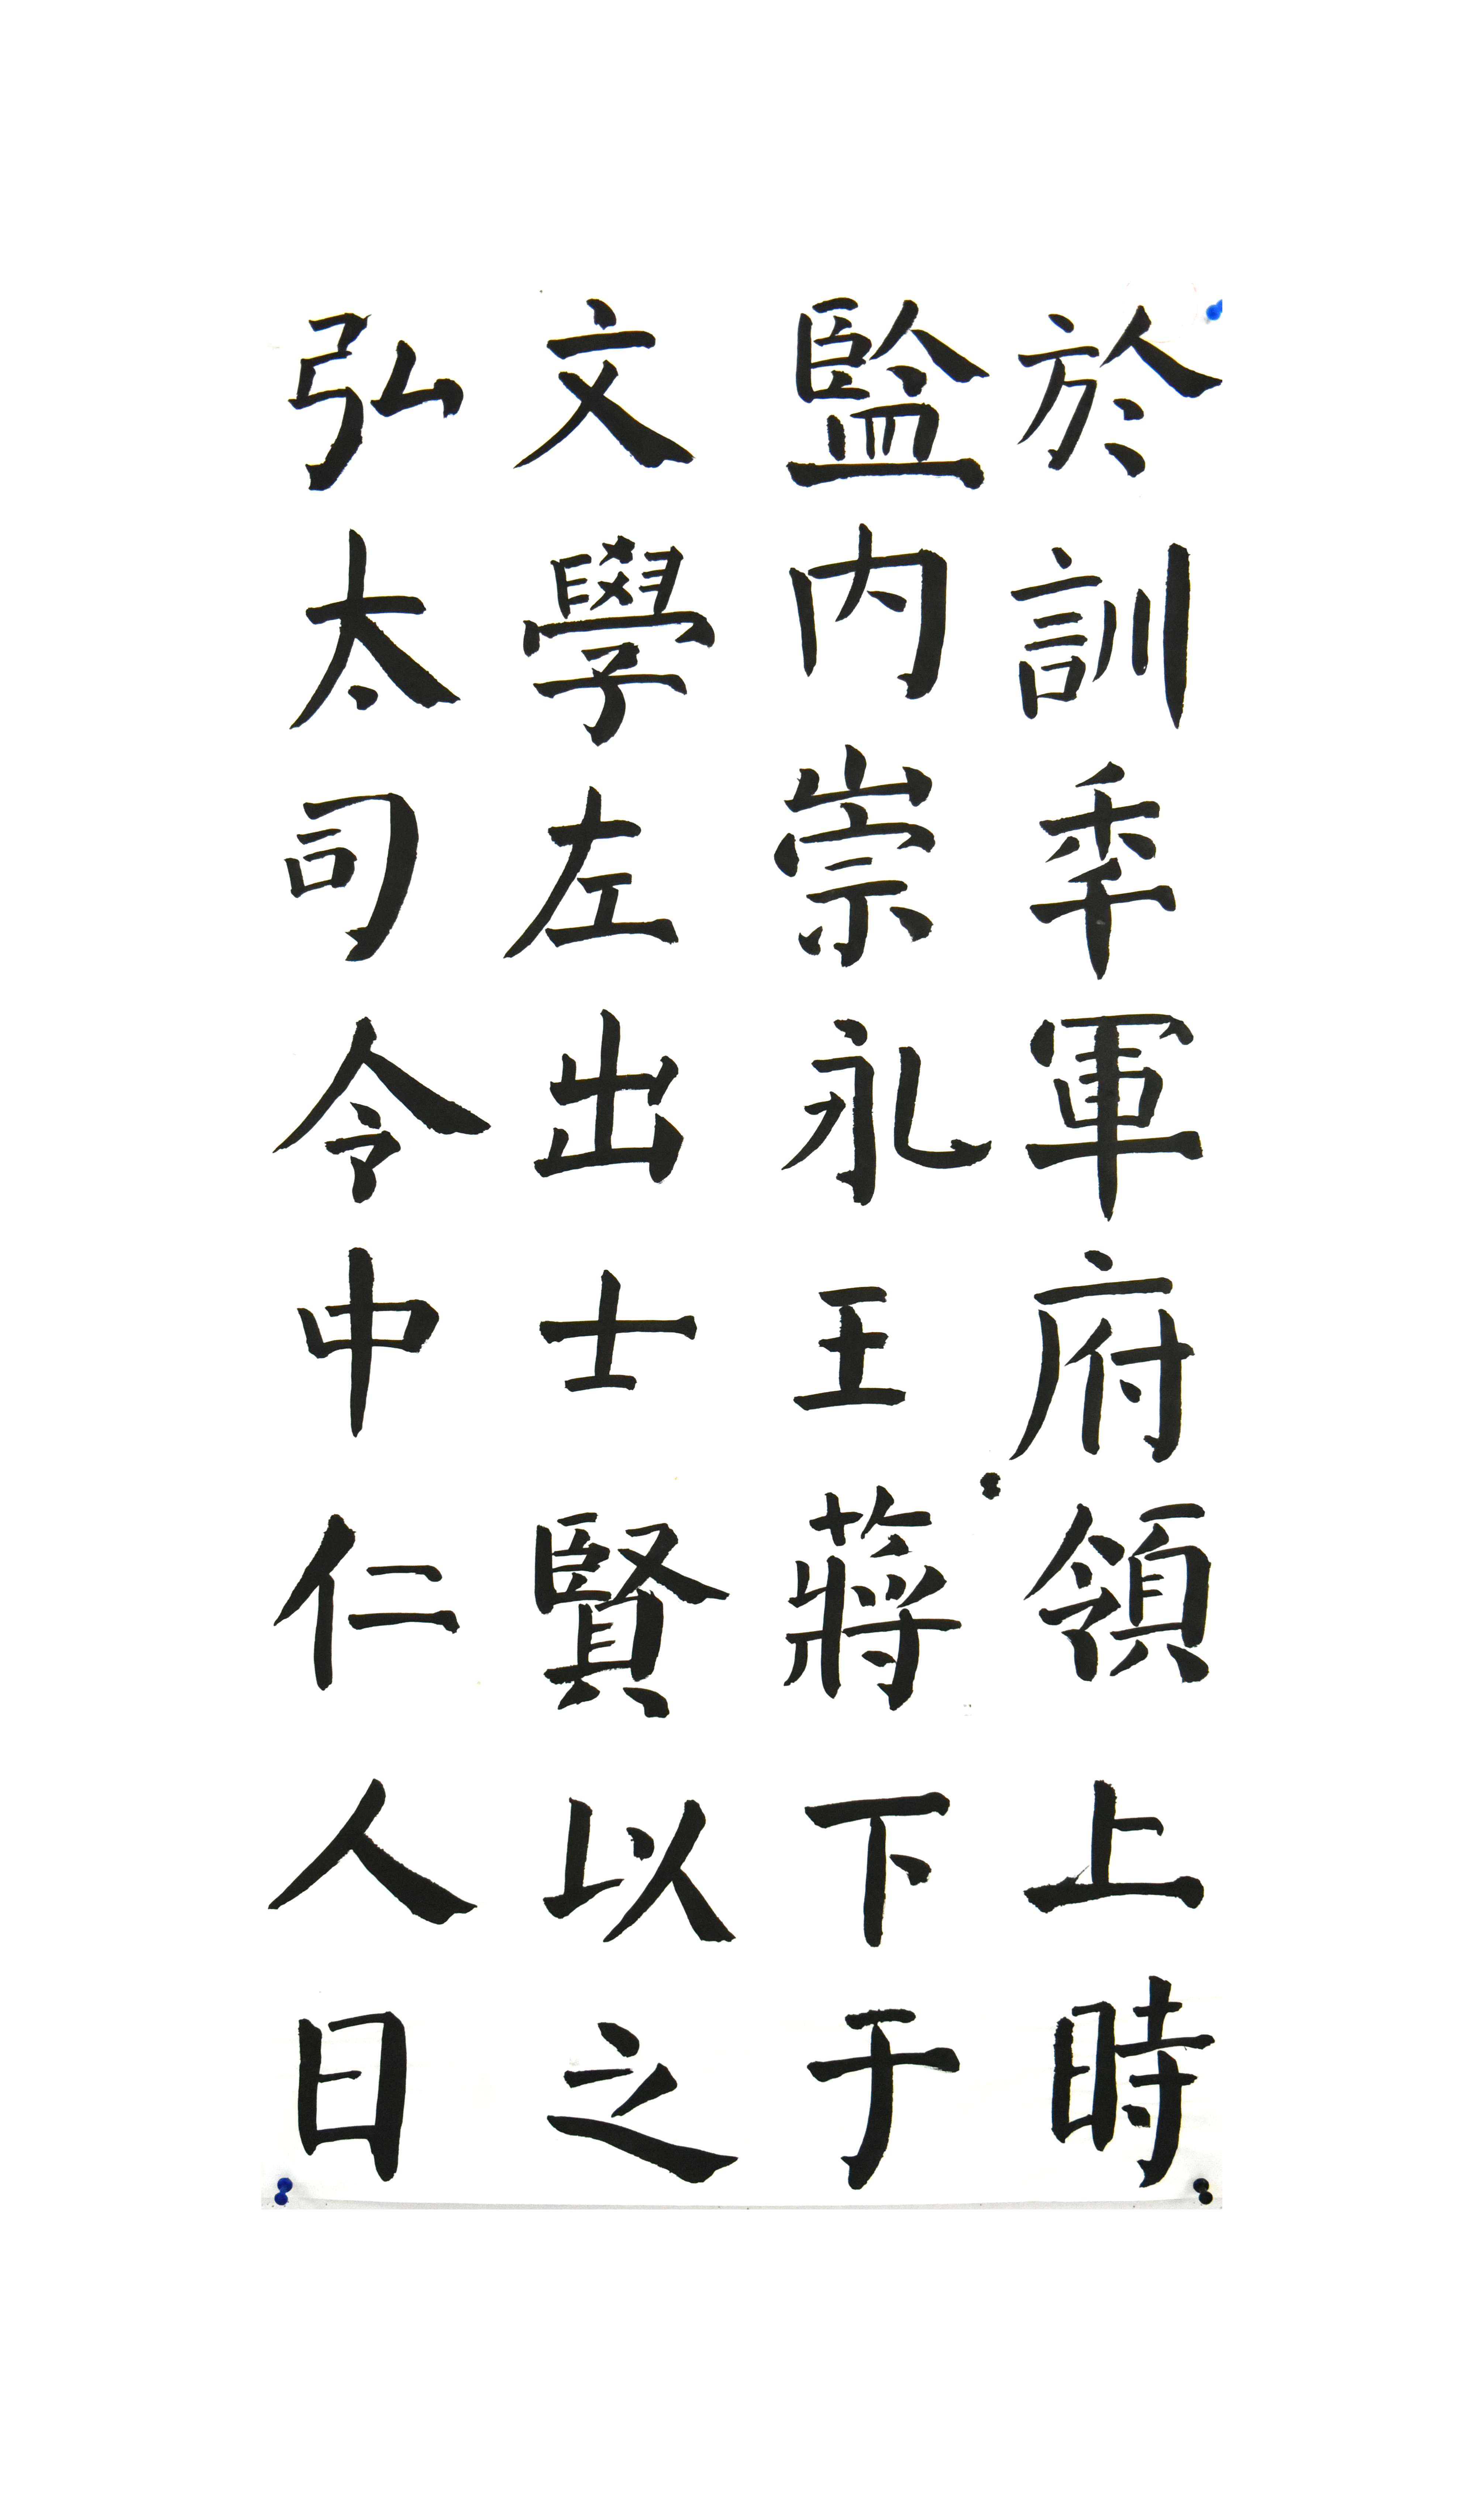 於訓秊軍府領上時
監内崇礼王蔣下于
文學左出士賢以之
弘太司令中仁人日